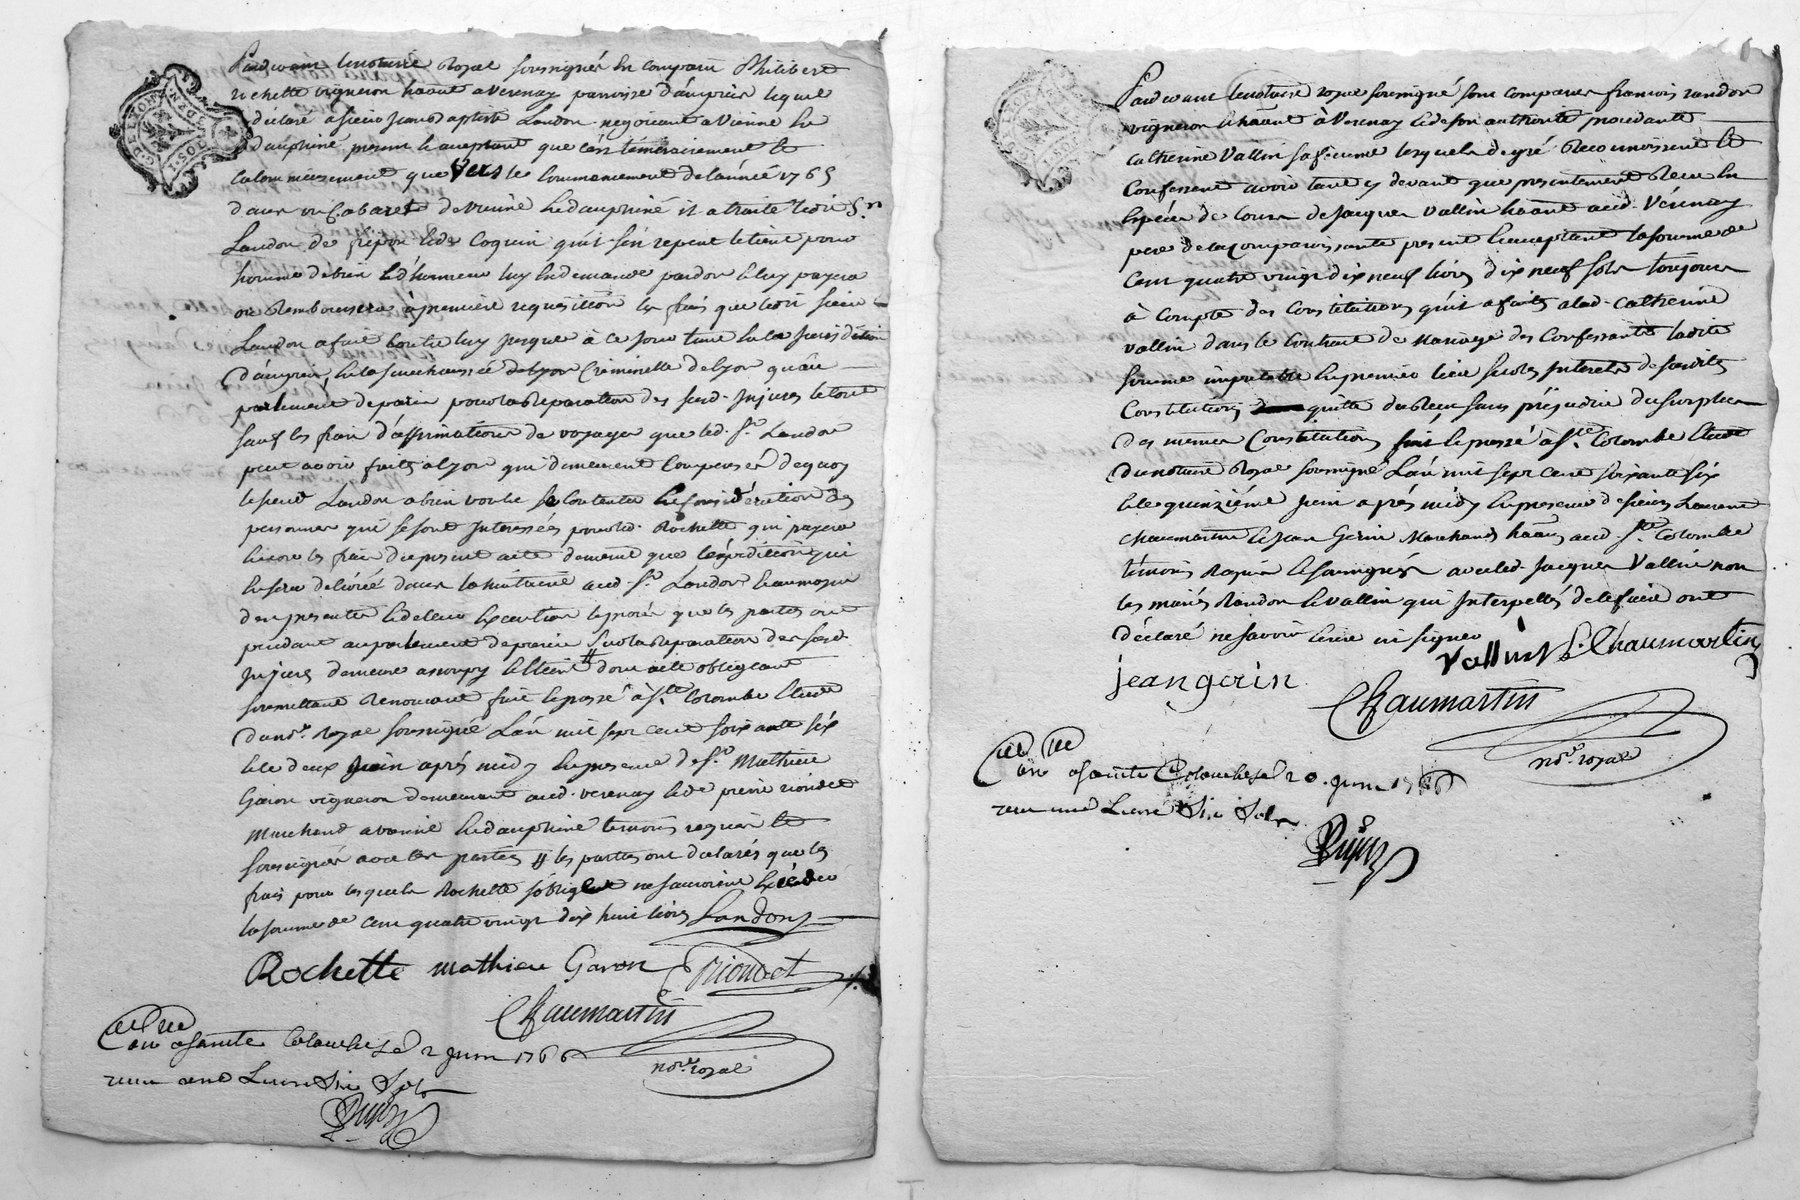 Pardevant le notaire Royal soussigné En comparu Philibert
richette vigneron haant a Verenay parroisse d'ampuis lequel
declaré a sieur Jean Baptiste Landon negociant a Vienne En
dauphiné present Et acceptant que c'est témérairement Et
Calomnieusement que Vers le Commencement de l'année 1765
dans un Cabaret de Vienne En dauphiné il a traité ledit Sr.
Landon de fripon Et de Coquin qu'il s'en repent le tient pour
homme de bien Et d'honneur luy En demande pardon Et luy payera
ou Remboursera à première requisition les frais que ledit sieur
Landon a fait Contre luy jusque à ce jour tant En la Jurisdiction
d'ampuis, En la Senechaussée de Lyon Criminelle de Lyon qu'au
parlement de paris pour la Reparation des susd. Injures le tout
sauf les frais d'affirmations de voyages que led. Sr. Landon
peut avoir faits a Lyon qui demeurent Compensés de quoy
le sieur Landon a bien voulu se Contenter En Considération des
personnes qui se sont Interessées pour led. Rochette qui payera
Encore les frais du present acte dememe que l'expédition qui
En sera delivrée dans la huitaine aud. Sr. Landon Et au moyen
des presentes Et de leur Execution le procès que les parties ont
pendant au parlement de paris Sur la Reparation des susd.
Injures demeure assoupy Et Eteint # dont acte obligeant
soumettant Renonceant fait Et passé à Ste. Colombe Etude
du nore. Royal soussigné L'an mil sept cent soixante six
Et le deux Juin après midy En presence de Sr. Mathieu
Garon vigneron demeurant aud. verenay Et de pierre riondet
Marchand a vienne En dauphiné temoins requis Et
soussignés avec les parties # les parties ont declarés que les
frais pour lesquels Rochette s'oblige ne sauroient Excéder
la somme de Cent quatre vingt dix huit livres Landon
Rochette mathieu Garon Riondet
Chaumartin
nore. royal
a sainte Colombe Le 2 Juin 1766
recu une Livre Six Sols
Pardevant le notaire royal soussigné sont comparus francois randon
vigneron Et haant à Verenay Et de son authorité procédante
Catherine Vallin sa femme lesquels de gré Reconnoissent Et
Confessent avoir tant cy devant que presentement Reçu En
Espèces de Cours de Jacques Vallin haant aud. Verenay
pere de la Comparoissante present Et acceptant la somme de
Cent quatre vingt dix neuf livres dix neuf sols toujours
à Compte des Constitutions qu'il a faites a lad. Catherine
Vallin dans le Contrat de Mariage des Confessants ladite
somme imputable En premier lieu sur les Interets desdites
Constitutions quitte du Reçu sans préjudice du surplus
des memes Constitutions fait Et passé à Ste. Colombe Etude
du notaire Royal soussigné L'an mil sept cent soixante six
Et le quinzième Juin après midy En presence de sieurs Laurent
Chaumartin Et Jean Gerin Marchands haants aud. Ste. Colombe
témoins Requis Et soussignés avec led. Jacques Vallin non
les mariés Randon Et vallin qui Interpellés de le faire ont
déclaré ne savoir Ecrire ni signer
Vallin L. Chaumartin
jean gerin
Chaumartin
nore. royal
a sainte Colombe Le 20 Juin 1766
recu une Livre Six Sols